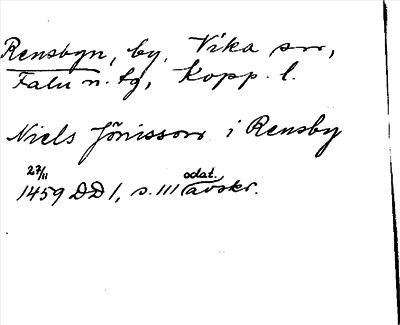 Rensbyn, by, Vika sn,
Falu n. tg, Kopp. l.
Niels Jönisson i Rensby
27/11 odat.
1459 DD 1, s. 111 (avskr.